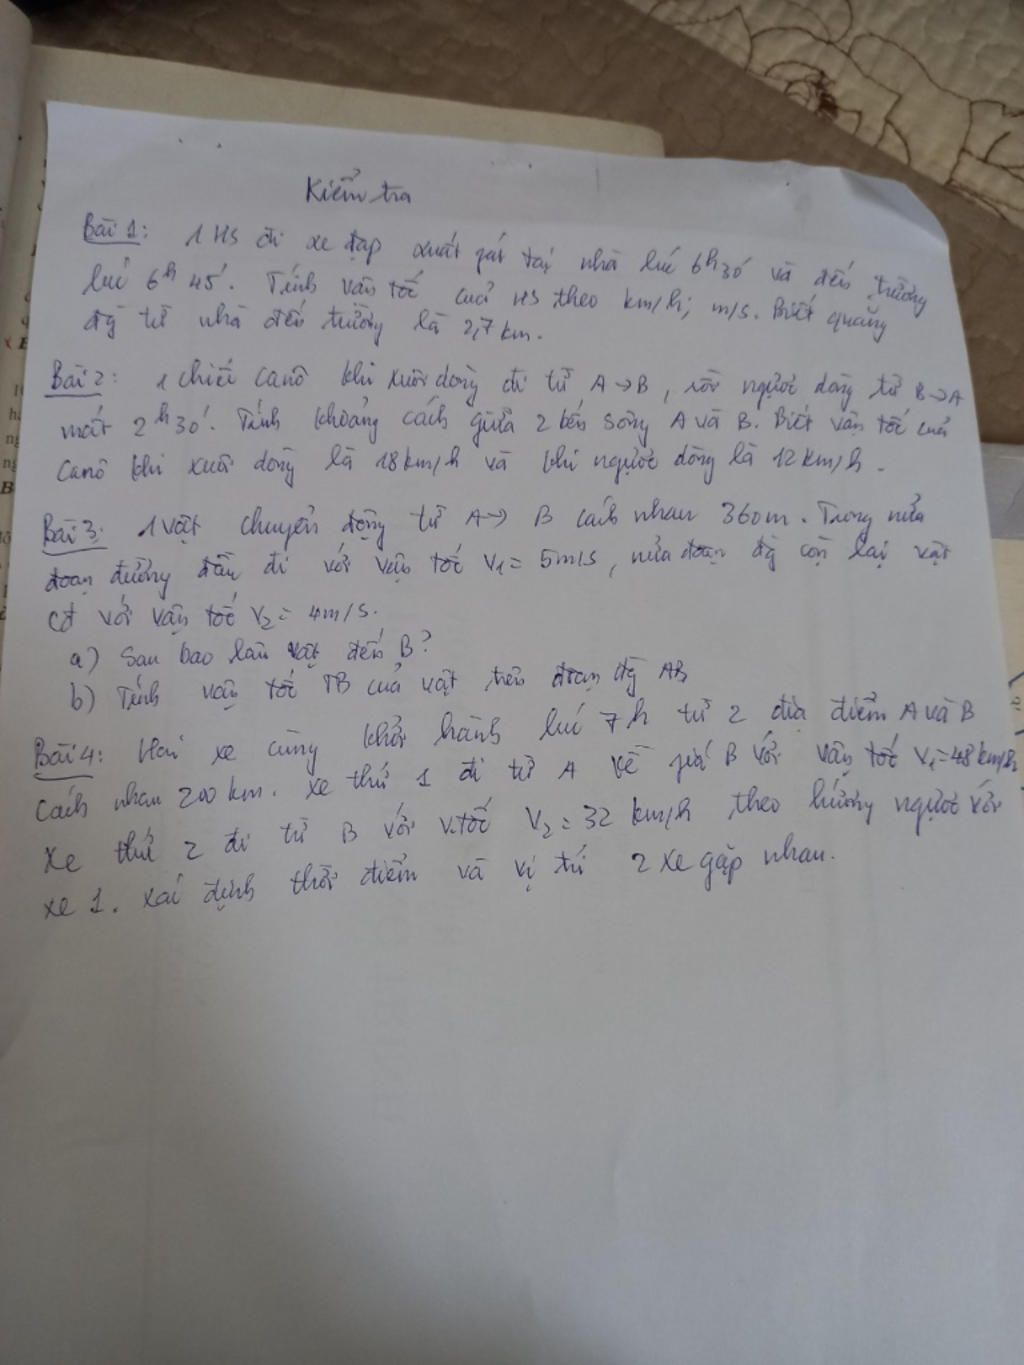 Kiểm tra
Bài 1: 1 HS đi xe đạp xuất phát tại nhà lúc 6h30' và đến trường
lúc 6h 45'. Tính vận tốc của HS theo km/h; m/s. Biết quãng
đg từ nhà đến trường là 2,7 km.
Bài 2: 1 chiếc canô khi xuôi dòng đi từ A→B, rồi ngược dòng từ B→A
mất 2h30'. Tính khoảng cách giữa 2 bến sông A và B. Biết vận tốc của
canô khi xuôi dòng là 18km/h và khi ngược dòng là 12km/h.
Bài 3: 1 vật chuyển động từ A→ B cách nhau 360m. Trong nửa
đoạn đường đầu đi với vận tốc V1= 5m/s, nửa đoạn đg còn lại vật
cđ với vận tốc V2= 4m/s.
a) Sau bao lâu vật đến B?
b) Tính vận tốc TB của vật trên đoạn đg AB
Bài 4: Hai xe cùng khởi hành lúc 7h từ 2 địa điểm A và B
cách nhau 200km. xe thứ 1 đi từ A về phía B với vận tốc V1=48km/h
xe thứ 2 đi từ B với v.tốc V2= 32 km/h theo hướng ngược với
xe 1. xác định thời điểm và vị trí 2 xe gặp nhau.